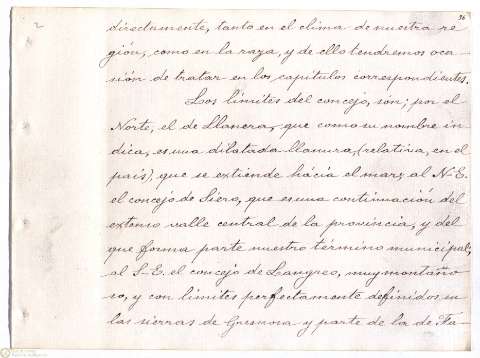 36
2
directamente, tanto en el clima de nuestra re
gión, como en la raza, y de ello tendremos oca
sión de tratar en los capítulos correspondientes.
Los límites del concejo, son; por el
Norte, el de Llanera, que como su nombre in
dica, es una dilatada llanura, (relativa, en el
país), que se extiende hácia el mar; al N-E.
el concejo de Siero, que es una continuación del
extenso valle central de la provincia, y del
que forma parte nuestro término municipal;
al S-E. el concejo de Langreo, muy montaño
so, y con límites perfectamente definidos en
las sierras de y parte de la de Fa-